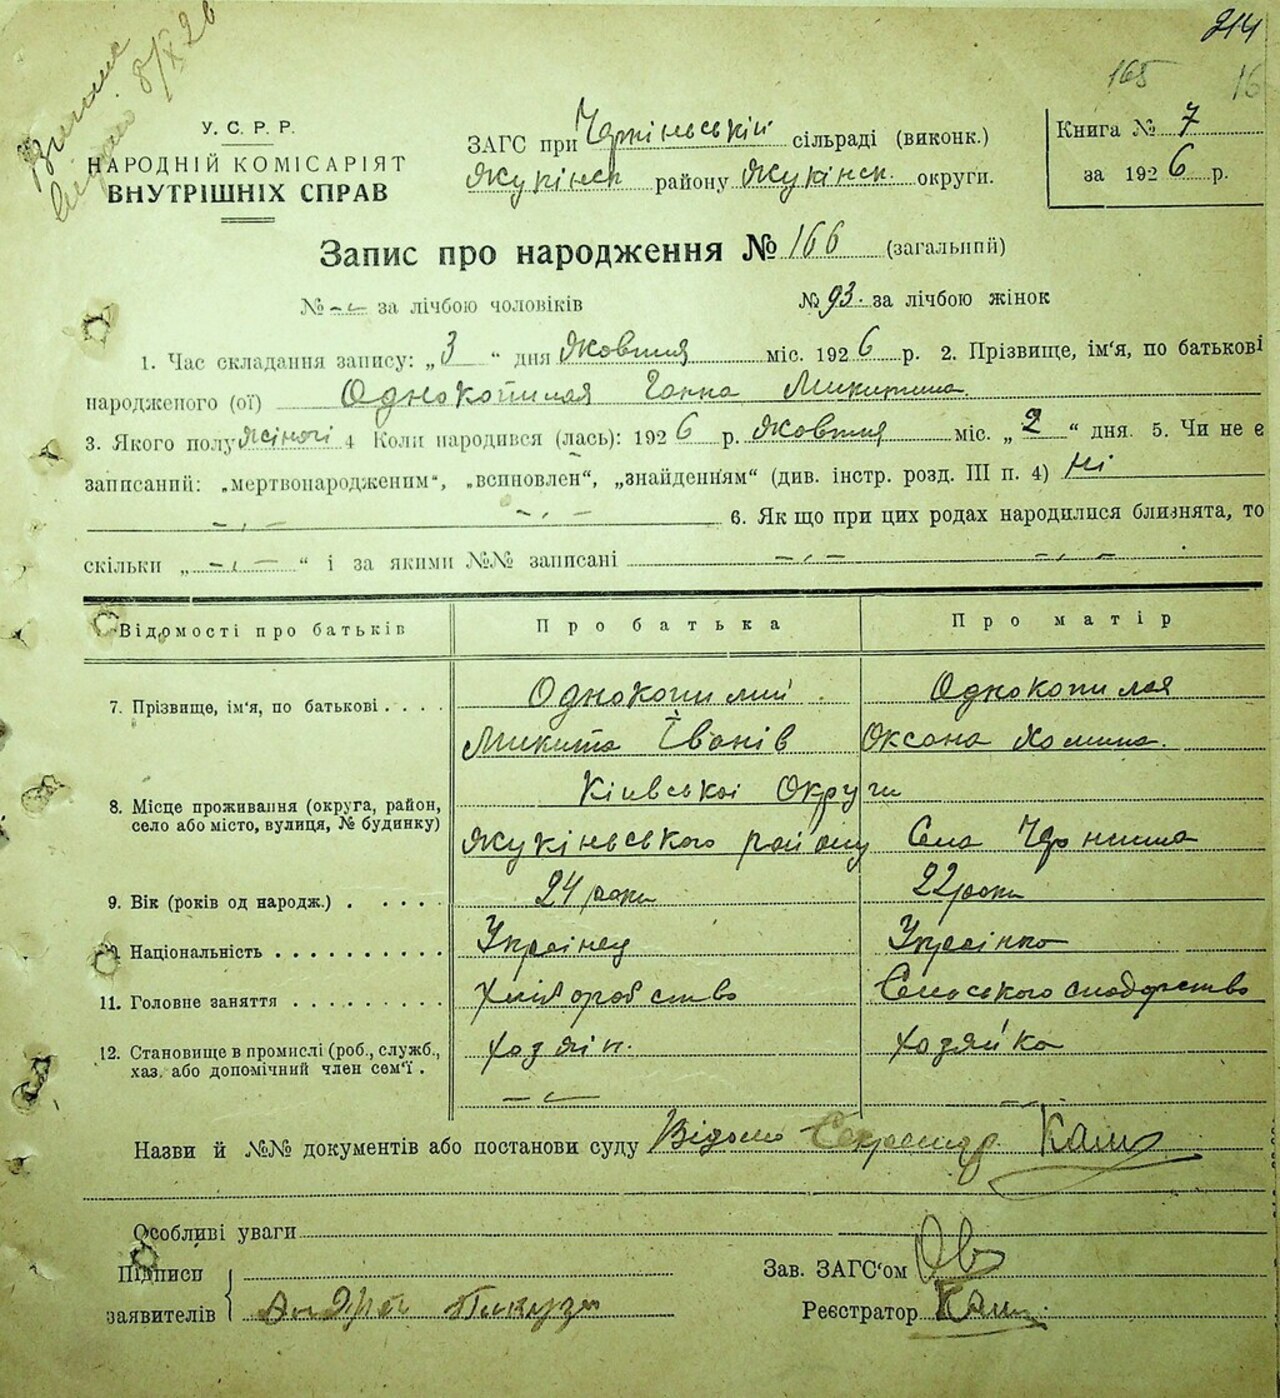 214
165 16
8/X 26
У. С. Р. Р.
НАРОДНІЙ КОМІСАРІЯТ
ВНУТРІШНІХ СПРАВ
ЗАГС при сільраді (виконк.)
району округи.
Книга № 7
за 1926 р.
Запис про народження № 166 (загальний)
№ за лічбою чоловіків № 93. за лічбою жінок
1. Час складання запису: „3“ дня Жовтня міс. 1926 р. 2. Прізвище, ім'я, по батькові
народженого (ої) Однокопилая Ганна Микитина.
3. Якого полу жіночі 4 Коли народився (лась): 1926 р. Жовтня міс. „2“ дня. 5. Чи не є
записаний: „мертвонародженим“, „всиновлен“, „знайденням“ (див. інстр. розд. III п. 4) Ні
6. Як що при цих родах народилися близнята, то
скільки „ “ і за якими №№ записані
Відомості про батьків Про батька Про матір
7. Прізвище, ім'я, по батькові . . . . Однокопилий Однокопилая
Микита Іванів Оксана Хомина.
8. Місце проживання (округа, район, село або місто, вулиця, № будинку) Київської Округи
району Села
9. Вік (років од народж.) . . . . . 24 роки 22 роки
10. Національність . . . . . . . . . . Українец Українка
11. Головне заняття . . . . . . . . . Хліборобство
12. Становище в промислі (роб., служб., хаз. або допомічний член сем'ї . Хозяін. Хозяйка
Назви й №№ документів або постанови суду Відомо Секретар Каш
Особливі уваги
Підписи
заявителів Андрей
Зав. ЗАГС'ом
Реєстратор Каш